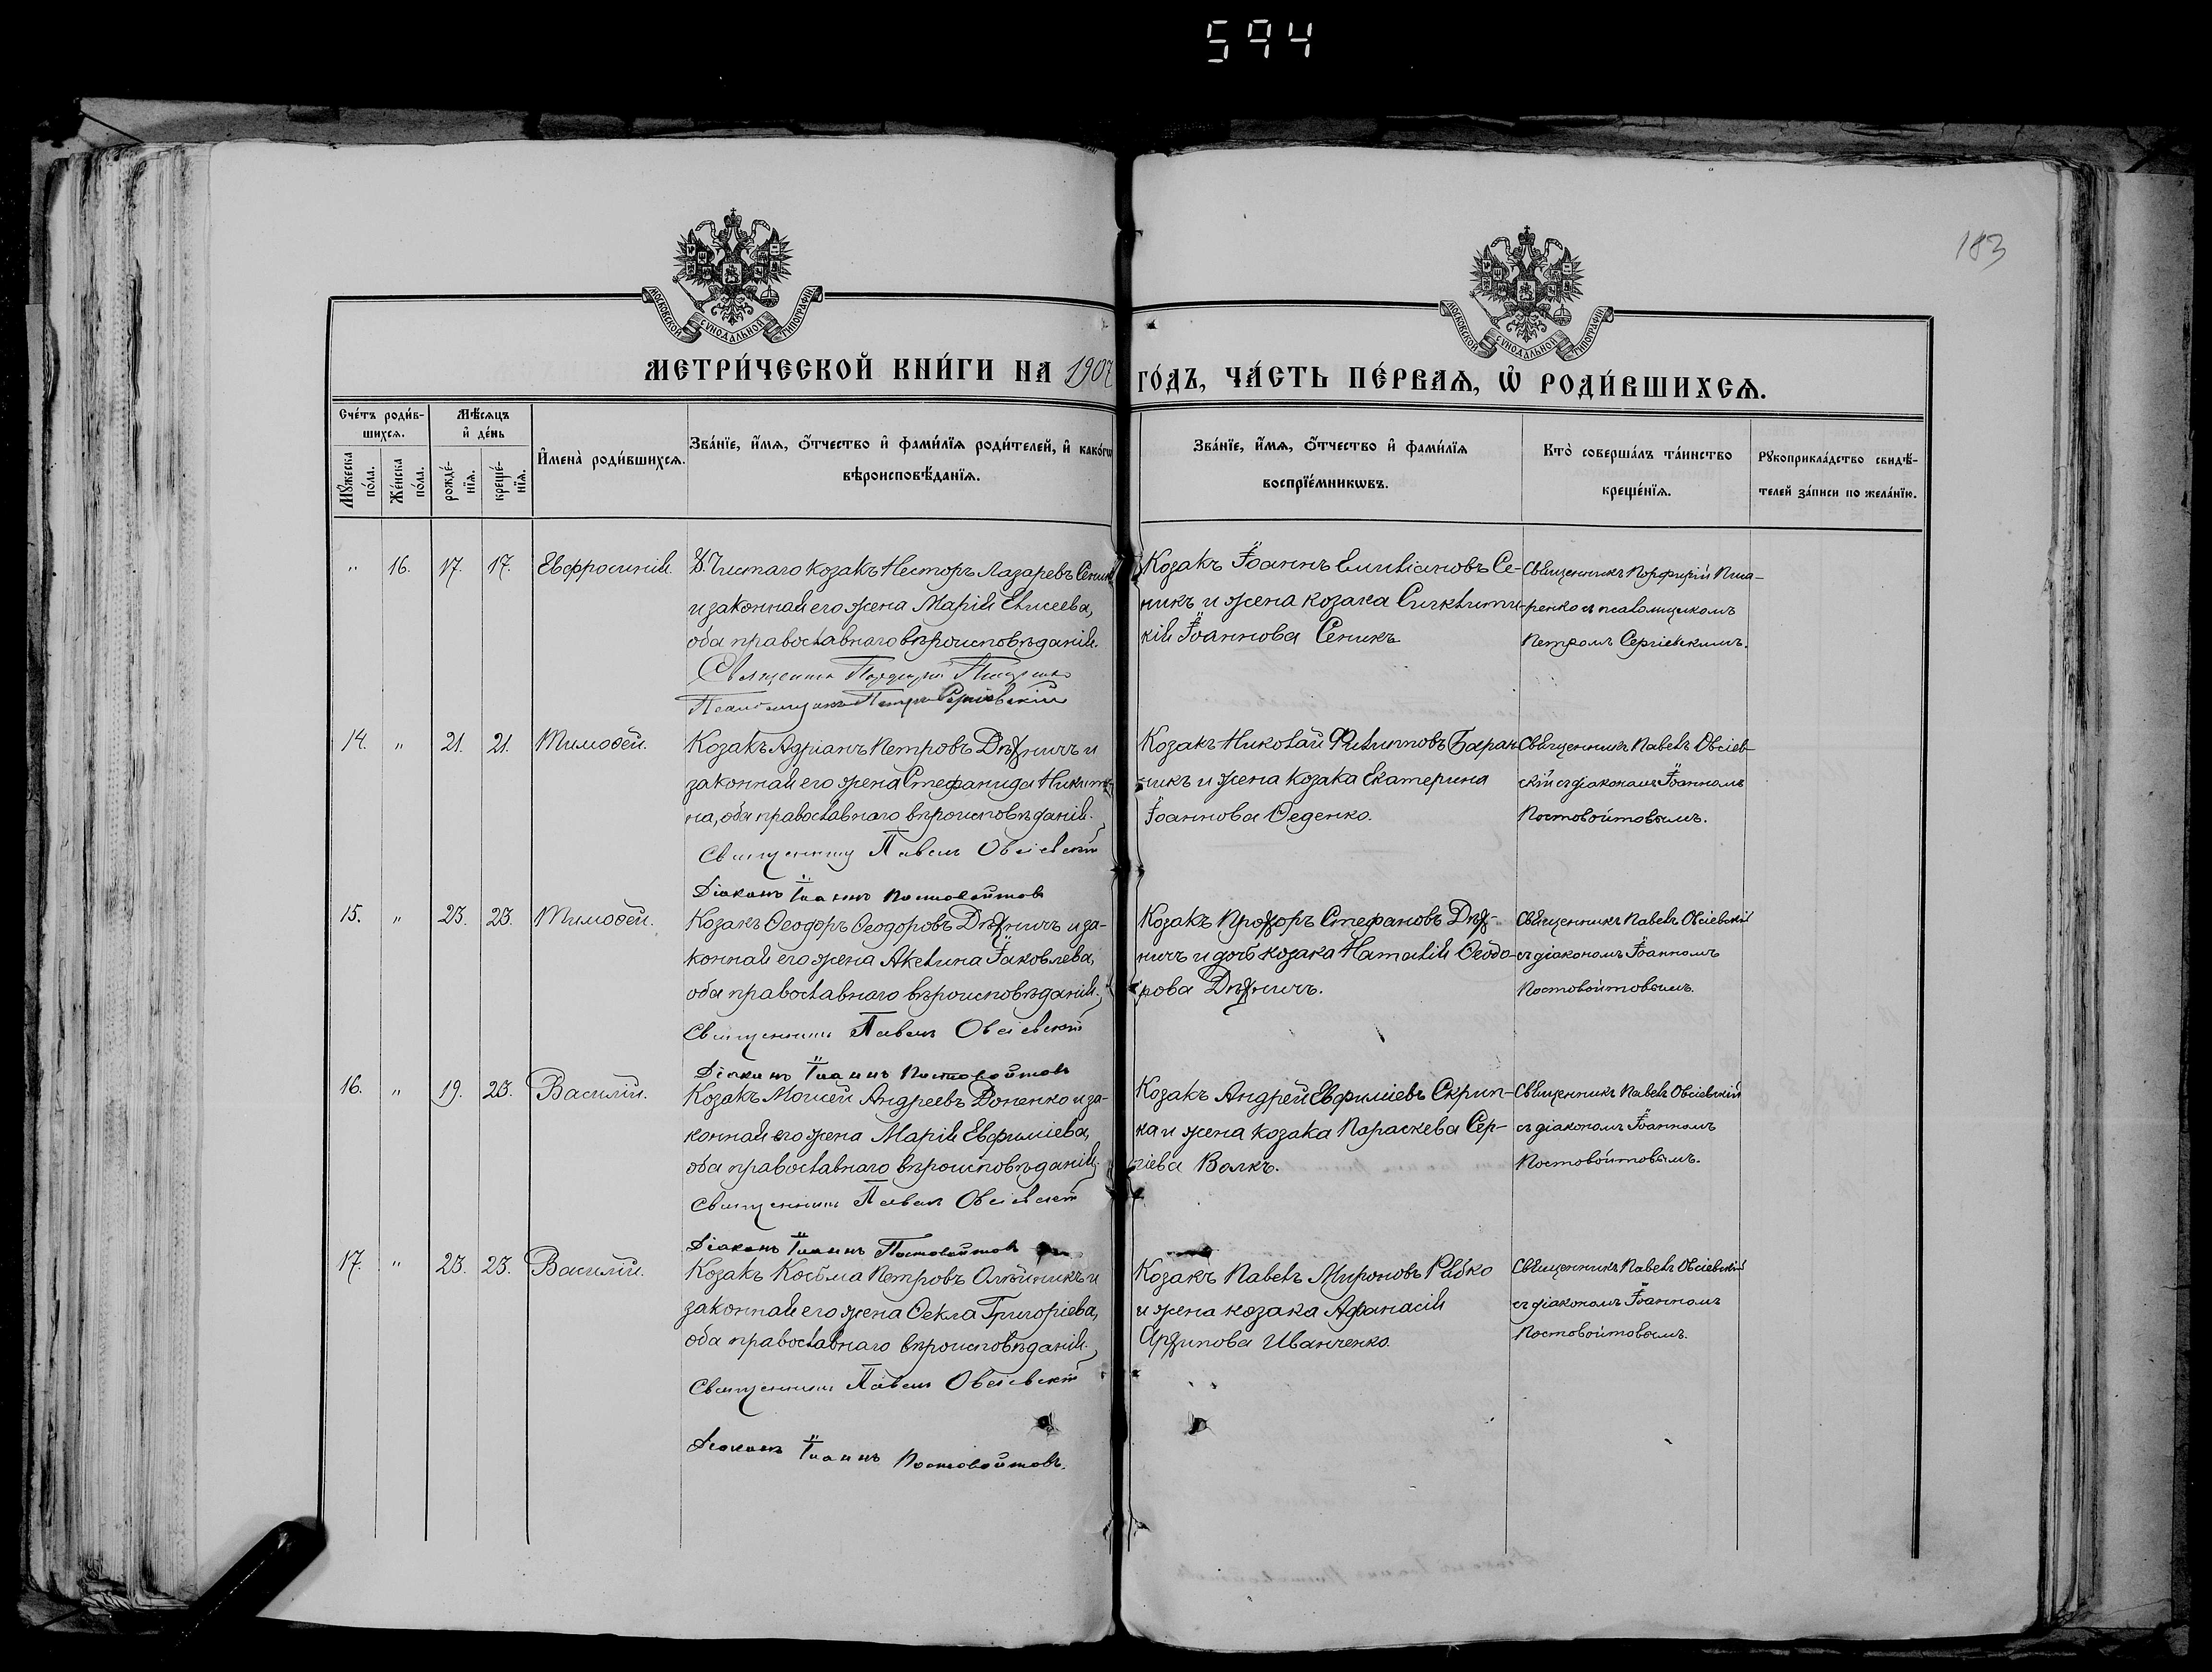 594
183
МОСКОВСКОЙ СѴНОДАЛЬНОЙ ТИПОГРАФІИ
МОСКОВСКОЙ СѴНОДАЛЬНОЙ ТИПОГРАФІИ
МЕТРИ́ЧЕСКОЙ КНИ́ГИ НА 1907 ГО́ДЪ, ЧА́СТЬ ПЕ́РВАѦ, Ѡ҆ РОДИ́ВШИХСѦ.
Сче́тъ роди́в-
шихсѧ.
Мꙋ́жеска по́ла.
Же́нска по́ла.
Мѣ́сѧцъ
и҆ де́нь
рожде́-
нїѧ.
креще́-
нїѧ.
И҆мена̀ роди́вшихсѧ.
Зва́нїе, и҆́мѧ, ѻ҆́тчество и҆ фами́лїѧ роди́телей, и҆ како́гѡ
вѣроисповѣ́данїѧ.
Зва́нїе, и҆́мѧ, ѻ҆́тчество и҆ фами́лїѧ
воспрїе́мникѡвъ.
Кто̀ соверша́лъ та́инство
креще́нїѧ.
Рꙋкоприкла́дство свидѣ́-
телей за́писи по жела́нїю.
" 16. 17. 17. Евфросинія.
Чистаго козакъ Несторъ Лазаревъ Сеникъ
и законная его жена Марія Елисеева,
оба православнаго вѣроисповѣданія.
Священникъ Порфирій
Псаломщикъ Петръ Сергіевскій
Козакъ Іоаннъ Емиліановъ Се-
никъ и жена козака Синклити-
кія Іоаннова Сеникъ
Священникъ Порфирій Писа-
ренко съ псаломщикомъ
Петромъ Сергіевскимъ.
14. " 21. 21. Тимоѳей.
Козакъ Адріанъ Петровъ Дѣхничъ и
законная его жена Стефанида Никити-
на, оба православнаго вѣроисповѣданія.
Священникъ Павелъ Овсіевскій
Діаконъ Іоаннъ Постовойтовъ
Козакъ Николай Филипповъ Баран-
никъ и жена козака Екатерина
Іоаннова Ѳеденко.
Священникъ Павелъ Овсіев-
скій съ діакономъ Іоанномъ
Постовойтовымъ.
15. " 23. 23. Тимоѳей.
Козакъ Ѳеодоръ Ѳеодоровъ Дѣхничъ и за-
конная его жена Акелина Іаковлева,
оба православнаго вѣроисповѣданія.
Священникъ Павелъ Овсіевскій
Діаконъ Іоаннъ Постовойтовъ
Козакъ Прохоръ Стефановъ Дѣх-
ничъ и дочь козака Наталія Ѳеодо-
рова Дѣхничъ.
Священникъ Павелъ Овсіевскій
съ діакономъ Іоанномъ
Постовойтовымъ.
16. " 19. 23. Василій.
Козакъ Моисей Андреевъ Доненко и за-
конная его жена Марія Евфиміева,
оба православнаго вѣроисповѣданія.
Священникъ Павелъ Овсіевскій
Діаконъ Іоаннъ Постовойтовъ
Козакъ Андрей Евфиміевъ Скрип-
ка и жена козака Параскева Сер-
гіева Волкъ.
Священникъ Павелъ Овсіевскій
съ діакономъ Іоанномъ
Постовойтовымъ.
17. " 23. 23. Василій.
Козакъ Косьма Петровъ Олѣйникъ и
законная его жена Ѳекла Григоріева,
оба православнаго вѣроисповѣданія.
Священникъ Павелъ Овсіевскій
Діаконъ Іоаннъ Постовойтовъ.
Козакъ Павелъ Мироновъ Рябко
и жена козака Афанасія
Архипова Иванченко.
Священникъ Павелъ Овсіевскій
съ діакономъ Іоанномъ
Постовойтовымъ.